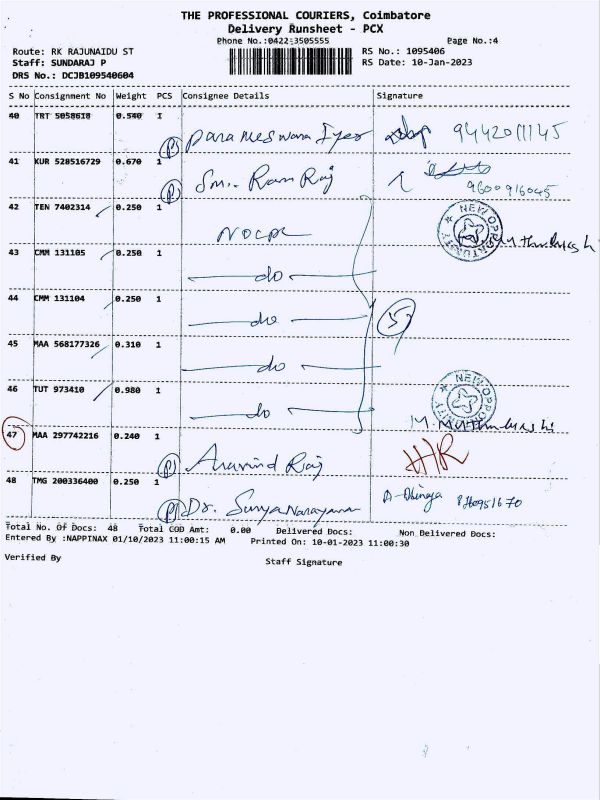 THE PROFESSIONAL COURIERS, Coimbatore
Delivery Runsheet - PCX
Phone No.:0422-3505555 Page No.:4
Route: RK RAJUNAIDU ST RS No.: 1095406
Staff: SUNDARAJ P RS Date: 10-Jan-2023
DRS No.: DCJB109540604
S No Consignment No Weight PCS Consignee Details Signature
40 TRT 5058618 0.540 1
(P) Parameswara Iyer 9442011145
41 KUR 528516729 0.670 1
(P) Sm.. Ram Raj 9600916045
42 TEN 7402314 0.250 1
NOCPL NEW OPPORTUNITY
43 CMM 131105 0.250 1
do
44 CMM 131104 0.250 1
do 5
45 MAA 568177326 0.310 1
do
46 TUT 973410 0.980 1
do NEW OPPORTUNITY
47 MAA 297742216 0.240 1
(P) Aravind Raj HR
48 TMG 200336400 0.250 1
(P) Dr. Suryanarayana
Total No. Of Docs: 48 Total COD Amt: 0.00 Delivered Docs: Non Delivered Docs:
Entered By :NAPPINAX 01/10/2023 11:00:15 AM Printed On: 10-01-2023 11:00:30
Verified By Staff Signature